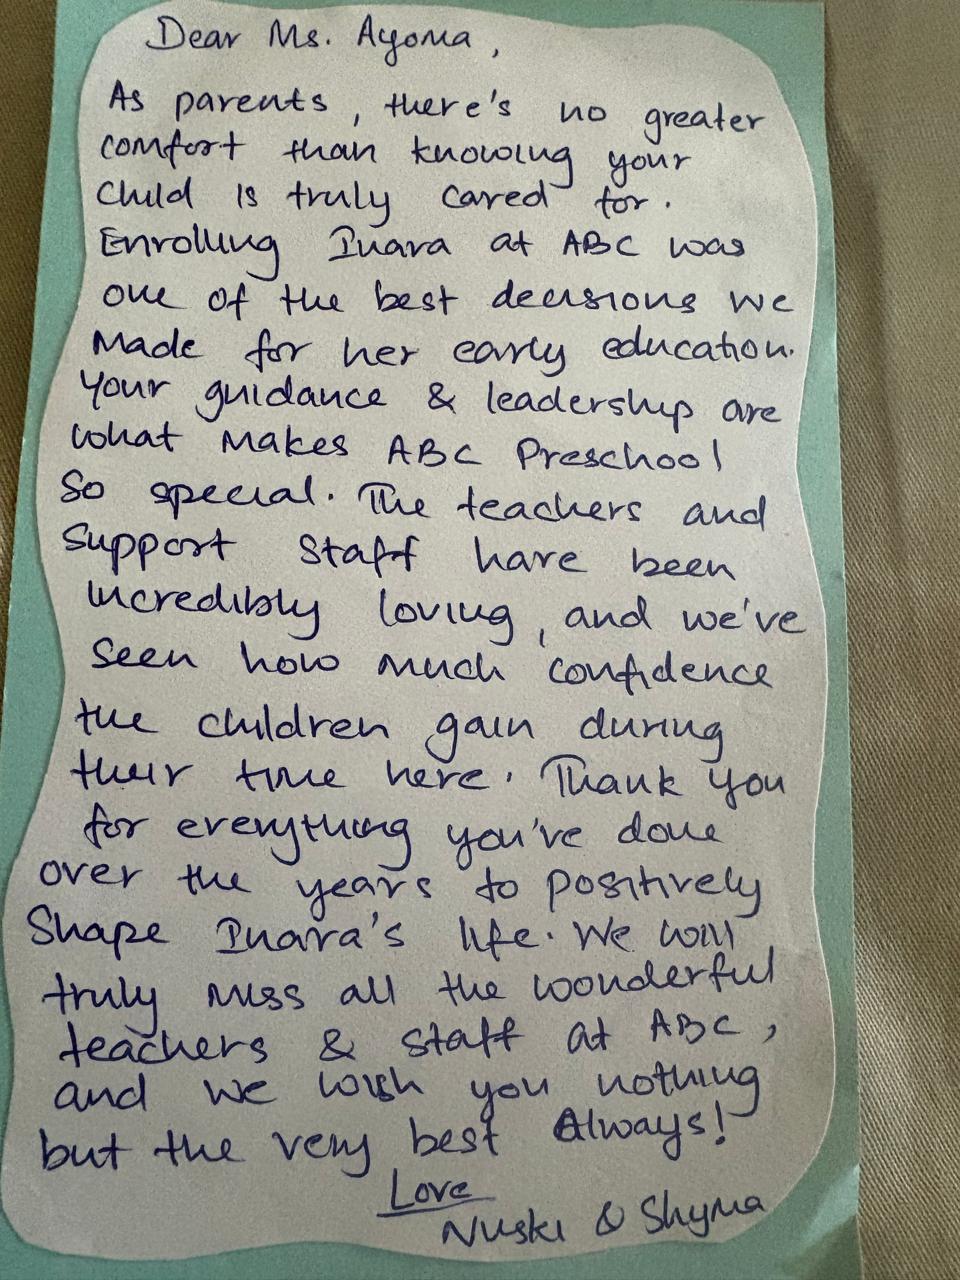 Dear Ms. Ayoma,
As parents, there's no greater
comfort than knowing your
child is truly cared for.
Enrolling Inara at ABC was
one of the best decisions we
made for her early education.
Your guidance & leadership are
what makes ABC Preschool
so special. The teachers and
support staff have been
incredibly loving, and we've
seen how much confidence
the children gain during
their time here. Thank you
for everything you've done
over the years to positively
shape Inara's life. We will
truly miss all the wonderful
teachers & staff at ABC,
and we wish you nothing
but the very best Always!
Love
Nuski & Shyma